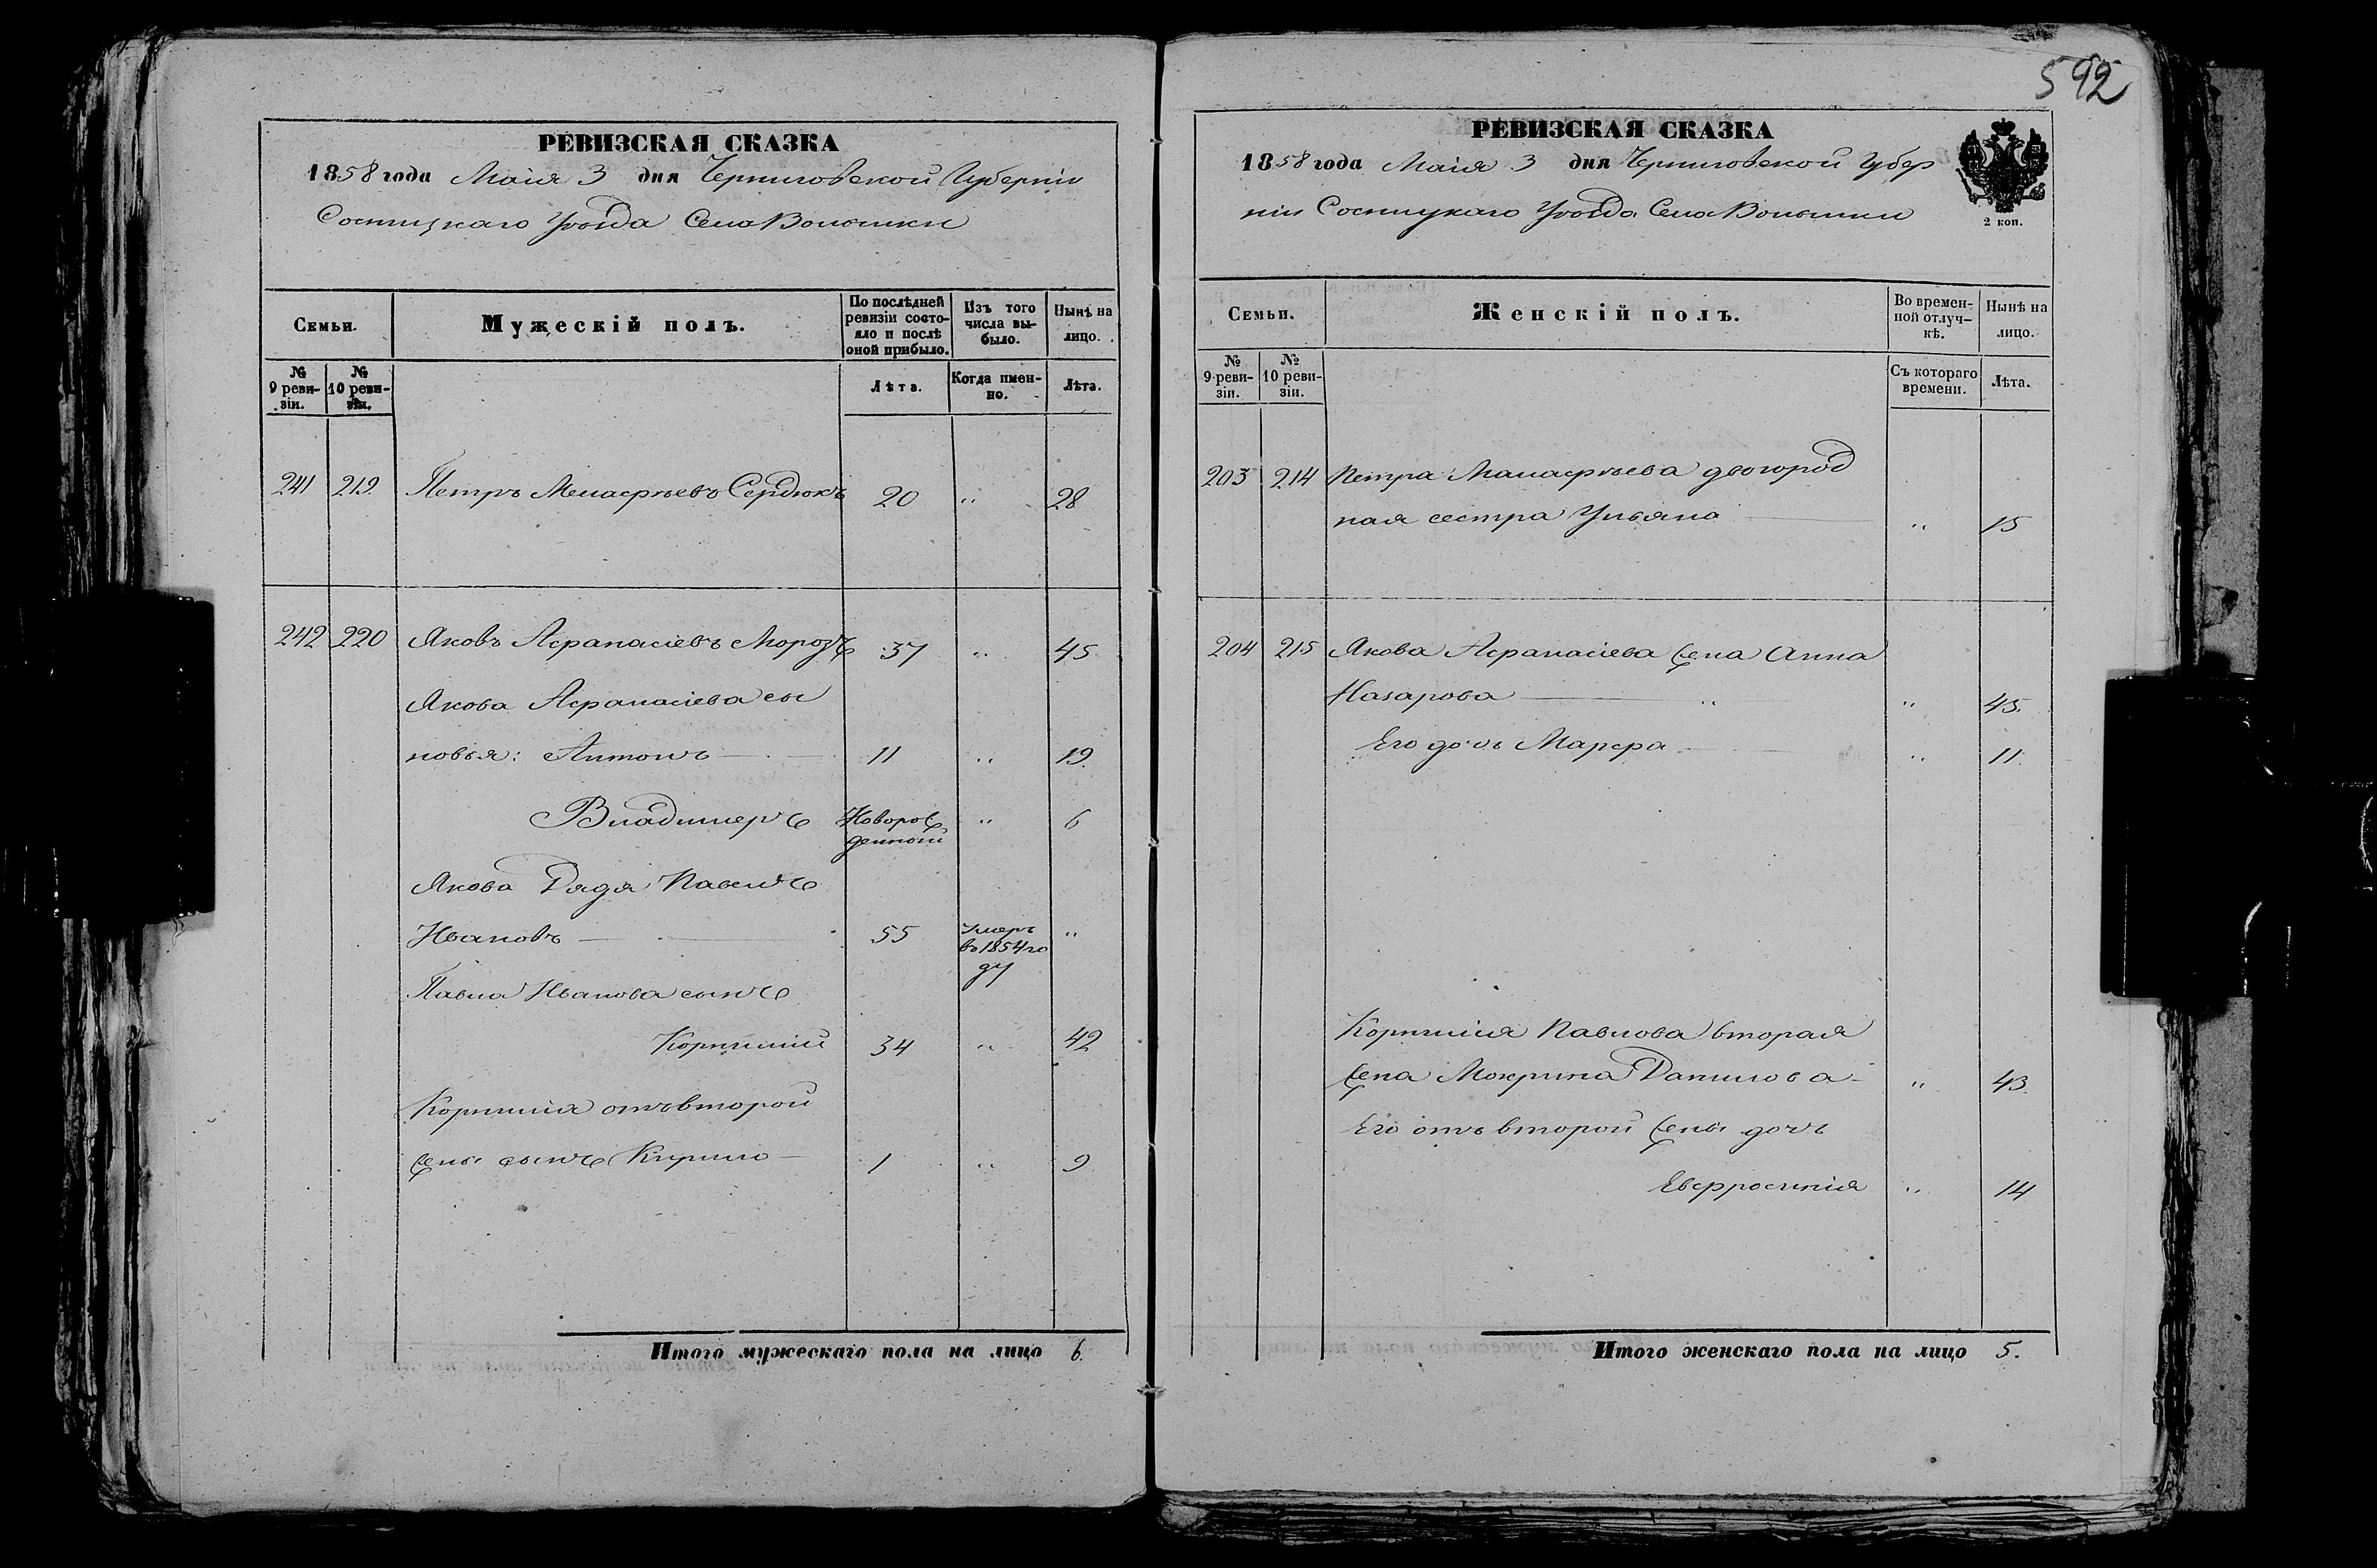 592
РЕВИЗСКАЯ СКАЗКА
1858 года Маія 3 дня Черниговской Губерніи
Сосницкаго Уѣзда Села Волынки
Семьи.
Мужескій полъ.
По послѣдней ревизіи состо-
яло и послѣ оной прибыло.
Изъ того числа вы-
было.
Нынѣ на лицо.
№ 9 реви-
зіи.
№ 10 реви-
зіи.
Лѣта.
Когда имен-
но.
Лѣта.
241 219 Петръ Менасфѣевъ Сердюкъ 20 " 28
242 220 Яковъ Афанасіевъ Морозъ 37 " 45
Якова Афанасіева сы
новья: Антонъ 11 " 19
Владимеръ Новорож
денной " 6
Якова Дядя Павелъ
Ивановъ 55 Умеръ
въ 1854 го
ду "
Павла Иванова сынъ
Корнилій 34 " 42
Корнилія отъ второй
жены сынъ Кирило 1 " 9
Итого мужескаго пола на лицо 6.
РЕВИЗСКАЯ СКАЗКА
1858 года Маія 3 дня Черниговской Губер
ніи Сосницкаго Уѣзда Села Волынки
2 коп.
Семьи.
Женскій полъ.
Во времен-
ной отлуч-
кѣ.
Нынѣ на лицо.
№ 9 реви-
зіи.
№ 10 реви-
зіи.
Съ котораго времени.
Лѣта.
203 214 Петра Манасфѣева двоюрод
ная сестра Ульяна " 15
204 215 Якова Афанасіева жена Анна
Назарова " " 45.
Его дочь Марфа " 11.
Корнилія Павлова вторая
жена Мокрина Данилова " 43
Его отъ второй жены дочь
Евфросинія " 14
Итого женскаго пола на лицо 5.